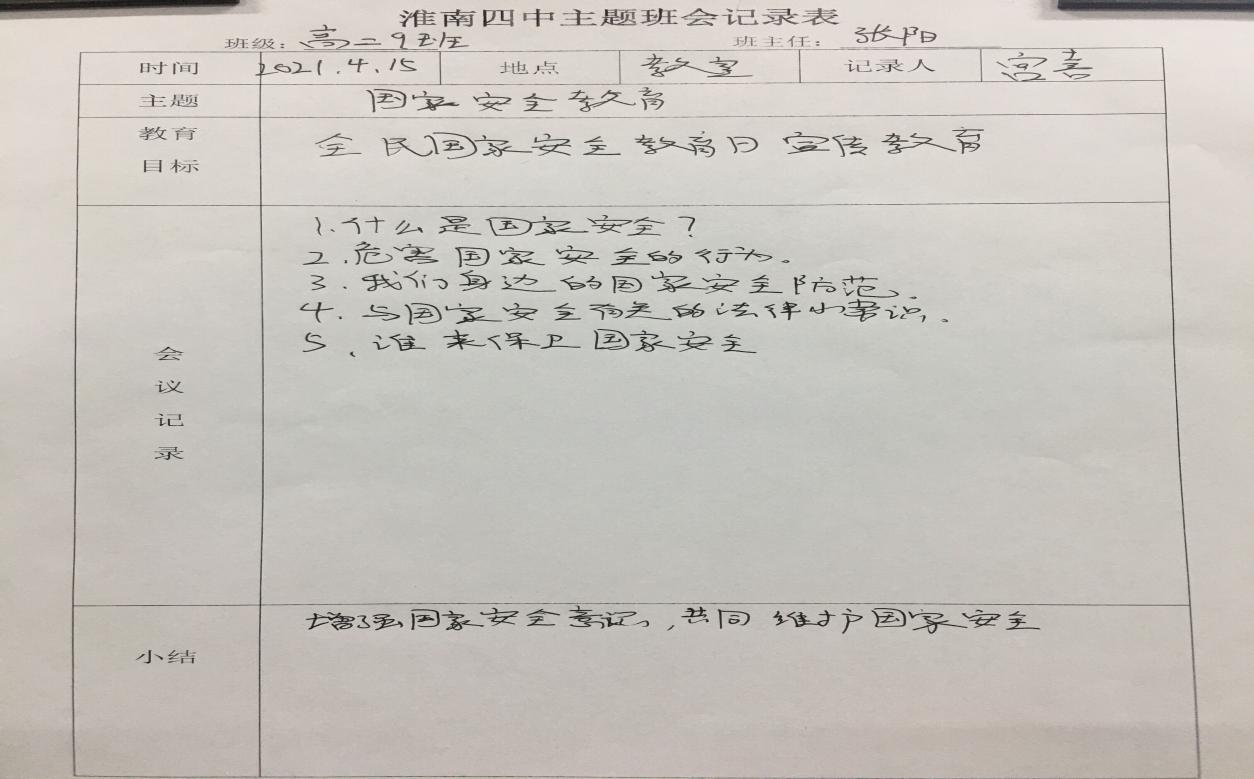 淮南四中主题班会记录表
班级：高二9班 班主任：张阳
时间 2021.4.15 地点 教室 记录人 宫喜
主题 国家安全教育
教育
目标
全民国家安全教育日宣传教育
会
议
记
录
1.什么是国家安全？
2.危害国家安全的行为。
3.我们身边的国家安全防范。
4.与国家安全有关的法律小常识。
5、谁来保卫国家安全
小结
增强国家安全意识，共同维护国家安全